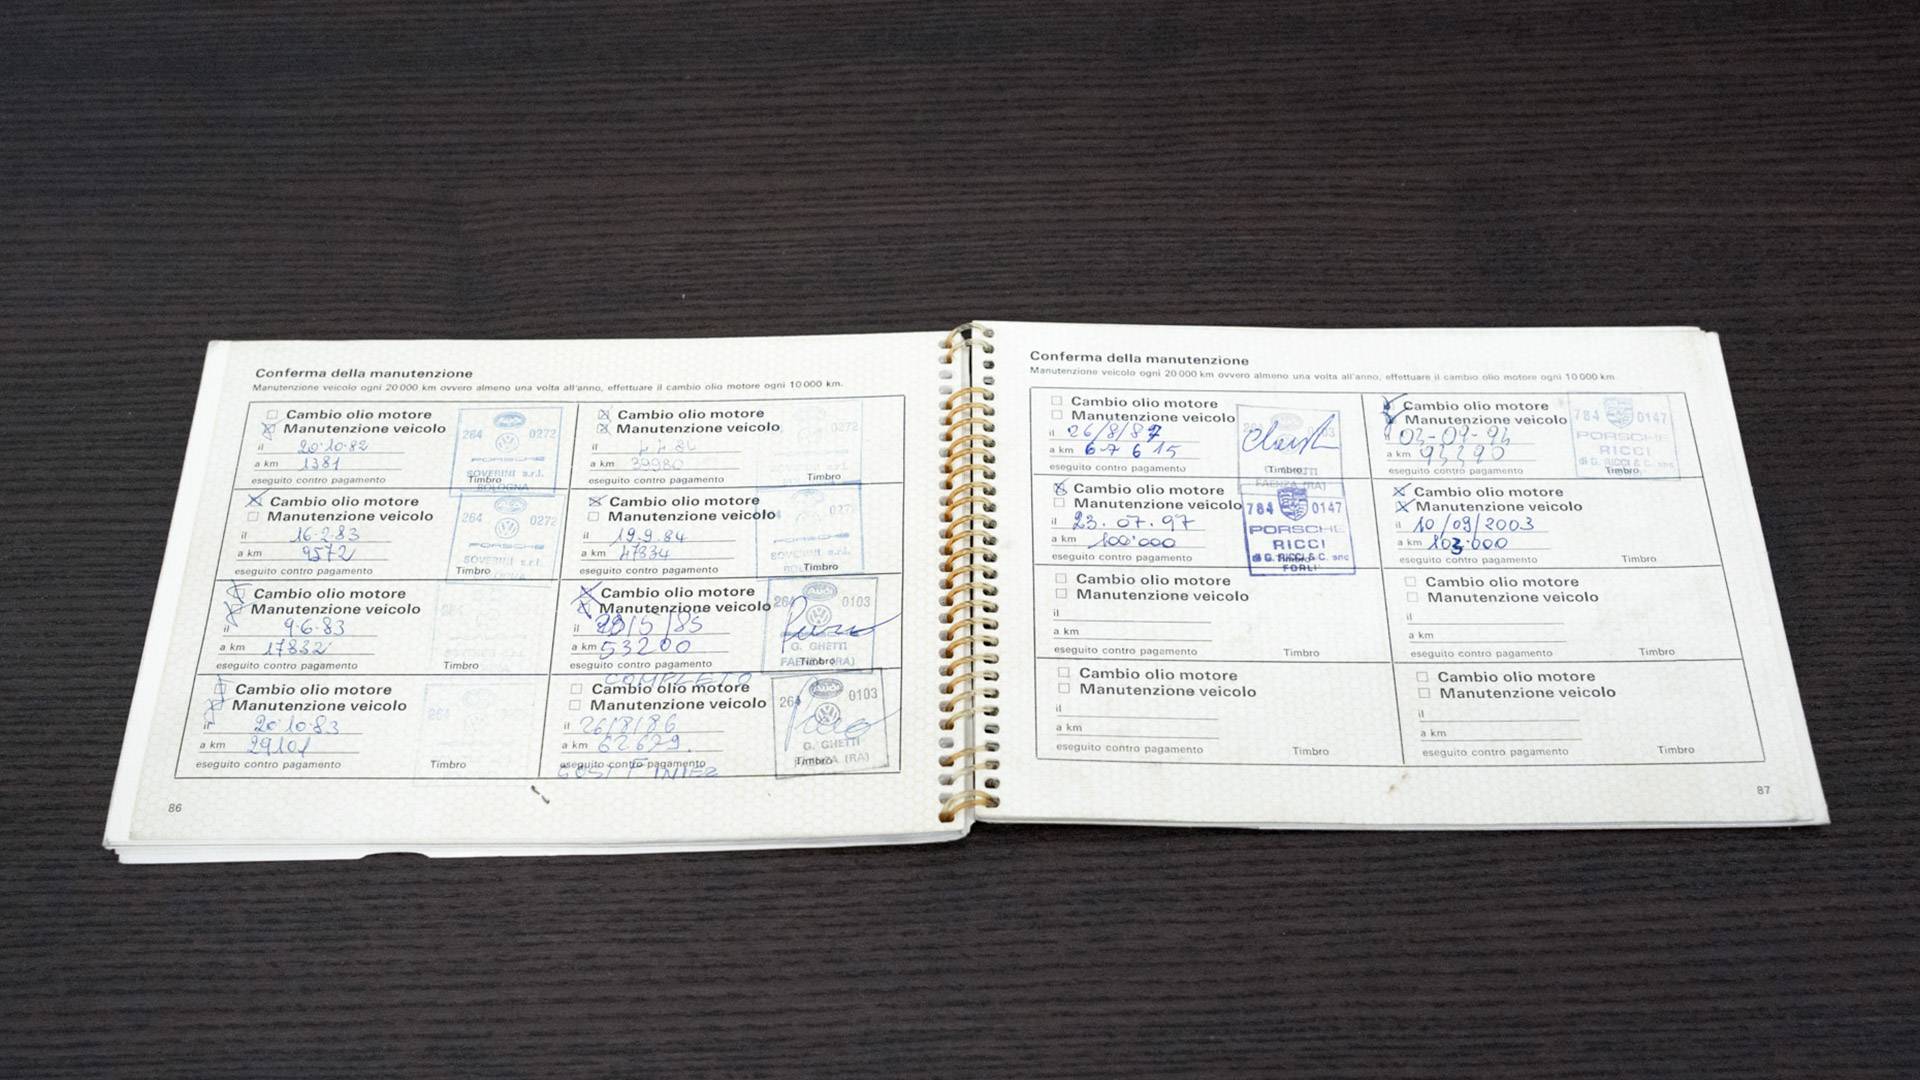 Conferma della manutenzione
Manutenzione veicolo ogni 20 000 km ovvero almeno una volta all'anno, effettuare il cambio olio motore ogni 10 000 km.
Cambio olio motore
Manutenzione veicolo
il 20.10.82
a km 1381
eseguito contro pagamento
Timbro
264 0272
PORSCHE
SOVERINI s.r.l.
BOLOGNA
Cambio olio motore
Manutenzione veicolo
il
a km 39980
eseguito contro pagamento
Timbro
0272
Cambio olio motore
Manutenzione veicolo
il 16.2.83
a km 9572
eseguito contro pagamento
Timbro
264 0272
PORSCHE
SOVERINI s.r.l.
Cambio olio motore
Manutenzione veicolo
il 19.9.84
a km 47834
eseguito contro pagamento
Timbro
SOVERINI s.r.l.
Cambio olio motore
Manutenzione veicolo
il 9.6.83
a km 17832
eseguito contro pagamento
Timbro
Cambio olio motore
Manutenzione veicolo
il /5/85
a km 53200
eseguito contro pagamento
Timbro
264 Audi 0103
G. GHETTI
FAENZA (RA)
COMPLETO
Cambio olio motore
Manutenzione veicolo
il 20.10.83
a km 29101
eseguito contro pagamento
Timbro
264
Cambio olio motore
Manutenzione veicolo
il 26/8/86
a km 62629.
eseguito contro pagamento
Timbro
264 Audi 0103
G. GHETTI
FAENZA (RA)
86
Conferma della manutenzione
Manutenzione veicolo ogni 20 000 km ovvero almeno una volta all'anno, effettuare il cambio olio motore ogni 10 000 km.
Cambio olio motore
Manutenzione veicolo
il 26/8/87
a km 67615
eseguito contro pagamento
Timbro
FAENZA (RA)
Cambio olio motore
Manutenzione veicolo
il
a km
eseguito contro pagamento
Timbro
784 0147
PORSCHE
RICCI
di G. RICCI & C. snc
Cambio olio motore
Manutenzione veicolo
il 23.07.97
a km 100'000
eseguito contro pagamento
784 0147
PORSCHE
RICCI
di G. RICCI & C. snc
FORLI'
Cambio olio motore
Manutenzione veicolo
il 10/09/2003
a km 103.000
eseguito contro pagamento
Timbro
Cambio olio motore
Manutenzione veicolo
il
a km
eseguito contro pagamento
Timbro
Cambio olio motore
Manutenzione veicolo
il
a km
eseguito contro pagamento
Timbro
Cambio olio motore
Manutenzione veicolo
il
a km
eseguito contro pagamento
Timbro
Cambio olio motore
Manutenzione veicolo
il
a km
eseguito contro pagamento
Timbro
87